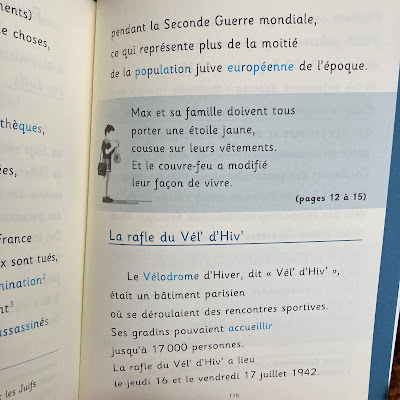 ments)
e choses,
thèques,
ées,
France
x sont tués,
mination²
nt³
assassinés
les Juifs
pendant la Seconde Guerre mondiale,
ce qui représente plus de la moitié
de la population juive européenne de l'époque.
Max et sa famille doivent tous
porter une étoile jaune,
cousue sur leurs vêtements.
Et le couvre-feu a modifié
leur façon de vivre.
(pages 12 à 15)
La rafle du Vél' d'Hiv'
Le Vélodrome d'Hiver, dit « Vél' d'Hiv' »,
était un bâtiment parisien
où se déroulaient des rencontres sportives.
Ses gradins pouvaient accueillir
jusqu'à 17 000 personnes.
La rafle du Vél' d'Hiv' a lieu
le jeudi 16 et le vendredi 17 juillet 1942.
115